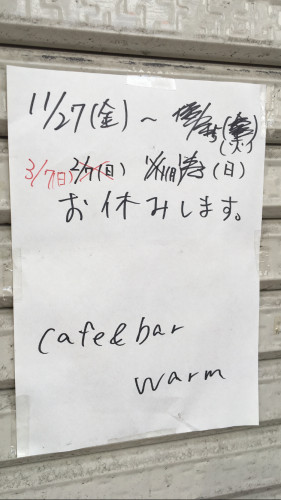 11/27(金)～
3/7(日) 2/7(日) (日)
お休みします。
cafe&bar
warm